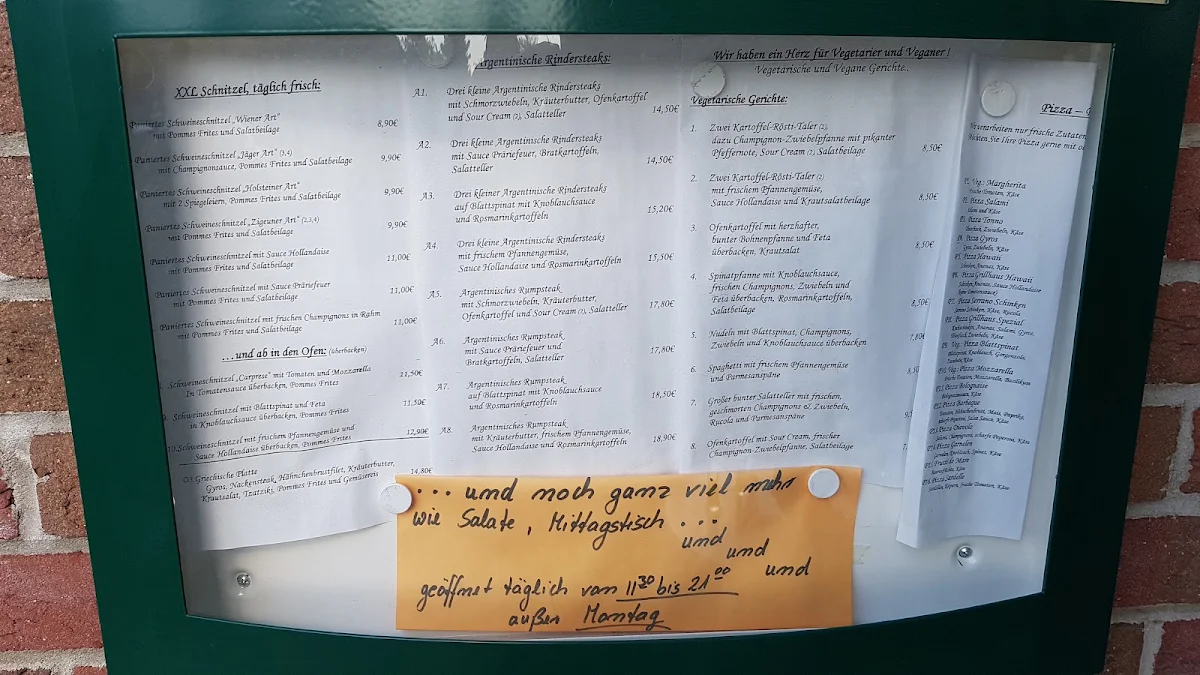 XXL Schnitzel, täglich frisch:
Paniertes Schweineschnitzel „Wiener Art"
mit Pommes Frites und Salatbeilage 8,90€
Paniertes Schweineschnitzel „Jäger Art" (3,4)
mit Champignonsauce, Pommes Frites und Salatbeilage 9,90€
Paniertes Schweineschnitzel „Holsteiner Art"
mit 2 Spiegeleiern, Pommes Frites und Salatbeilage 9,90€
Paniertes Schweineschnitzel „Zigeuner Art" (2,3,4)
mit Pommes Frites und Salatbeilage 9,90€
Paniertes Schweineschnitzel mit Sauce Hollandaise
mit Pommes Frites und Salatbeilage 11,00€
Paniertes Schweineschnitzel mit Sauce Präriefeuer
mit Pommes Frites und Salatbeilage 11,00€
Paniertes Schweineschnitzel mit frischen Champignons in Rahm
mit Pommes Frites und Salatbeilage 11,00€
...und ab in den Ofen: (überbacken)
Schweineschnitzel „Carprese" mit Tomaten und Mozzarella
In Tomatensauce überbacken, Pommes Frites 11,50€
Schweineschnitzel mit Blattspinat und Feta
in Knoblauchsauce überbacken, Pommes Frites 11,50€
10. Schweineschnitzel mit frischem Pfannengemüse und
Sauce Hollandaise überbacken, Pommes Frites 12,90€
Griechische Platte
Gyros, Nackensteak, Hähnchenbrustfilet, Kräuterbutter,
Krautsalat, Tzatziki, Pommes Frites und Gemüsereis 14,80€
Argentinische Rindersteaks:
A1. Drei kleine Argentinische Rindersteaks
mit Schmorzwiebeln, Kräuterbutter, Ofenkartoffel
und Sour Cream (2), Salatteller 14,50€
A2. Drei kleine Argentinische Rindersteaks
mit Sauce Präriefeuer, Bratkartoffeln,
Salatteller 14,50€
A3. Drei kleiner Argentinische Rindersteaks
auf Blattspinat mit Knoblauchsauce
und Rosmarinkartoffeln 15,20€
A4. Drei kleine Argentinische Rindersteaks
mit frischem Pfannengemüse,
Sauce Hollandaise und Rosmarinkartoffeln 15,50€
A5. Argentinisches Rumpsteak
mit Schmorzwiebeln, Kräuterbutter,
Ofenkartoffel und Sour Cream (2), Salatteller 17,80€
A6. Argentinisches Rumpsteak
mit Sauce Präriefeuer und
Bratkartoffeln, Salatteller 17,80€
A7. Argentinisches Rumpsteak
auf Blattspinat mit Knoblauchsauce
und Rosmarinkartoffeln 18,50€
A8. Argentinisches Rumpsteak
mit Kräuterbutter, frischem Pfannengemüse,
Sauce Hollandaise und Rosmarinkartoffeln 18,90€
Wir haben ein Herz für Vegetarier und Veganer!
Vegetarische und Vegane Gerichte..
Vegetarische Gerichte:
1. Zwei Kartoffel-Rösti-Taler (2),
dazu Champignon-Zwiebelpfanne mit pikanter
Pfeffernote, Sour Cream (2), Salatbeilage 8,50€
2. Zwei Kartoffel-Rösti-Taler (2)
mit frischem Pfannengemüse,
Sauce Hollandaise und Krautsalatbeilage 8,50€
3. Ofenkartoffel mit herzhafter,
bunter Bohnenpfanne und Feta
überbacken, Krautsalat 8,50€
4. Spinatpfanne mit Knoblauchsauce,
frischen Champignons, Zwiebeln und
Feta überbacken, Rosmarinkartoffeln,
Salatbeilage 8,50€
5. Nudeln mit Blattspinat, Champignons,
Zwiebeln und Knoblauchsauce überbacken 7,80€
6. Spaghetti mit frischem Pfannengemüse
und Parmesanspäne
7. Großer bunter Salatteller mit frischen,
geschmorten Champignons & Zwiebeln,
Rucola und Parmesanspäne
8. Ofenkartoffel mit Sour Cream, frischer
Champignon-Zwiebelpfanne, Salatbeilage
Pizza –
verarbeiten nur frische Zutaten
Sie Ihre Pizza gerne mit
Veg.: Margherita
frische Tomaten, Käse
Pizza Salami
Salami und Käse
Pizza Tonno
Thunfisch, Zwiebeln, Käse
Pizza Gyros
Gyros, Zwiebeln, Käse
Pizza Hawaii
Schinken, Ananas, Käse
Pizza Grillhaus Hawaii
Schinken, Ananas, Sauce Hollandaise
Pizza Serrano Schinken
Pizza Grillhaus Spezial
Pizza Blattspinat
Veg.: Pizza Mozzarella
Pizza Bolognaise
Pizza Barbeque
Pizza Diavolo
Pizza Garnelen
Pizza Sardelle
... und noch ganz viel mehr
wie Salate, Mittagstisch ...
und
und
und
geöffnet täglich von 11³⁰ bis 21⁰⁰
außer Montag